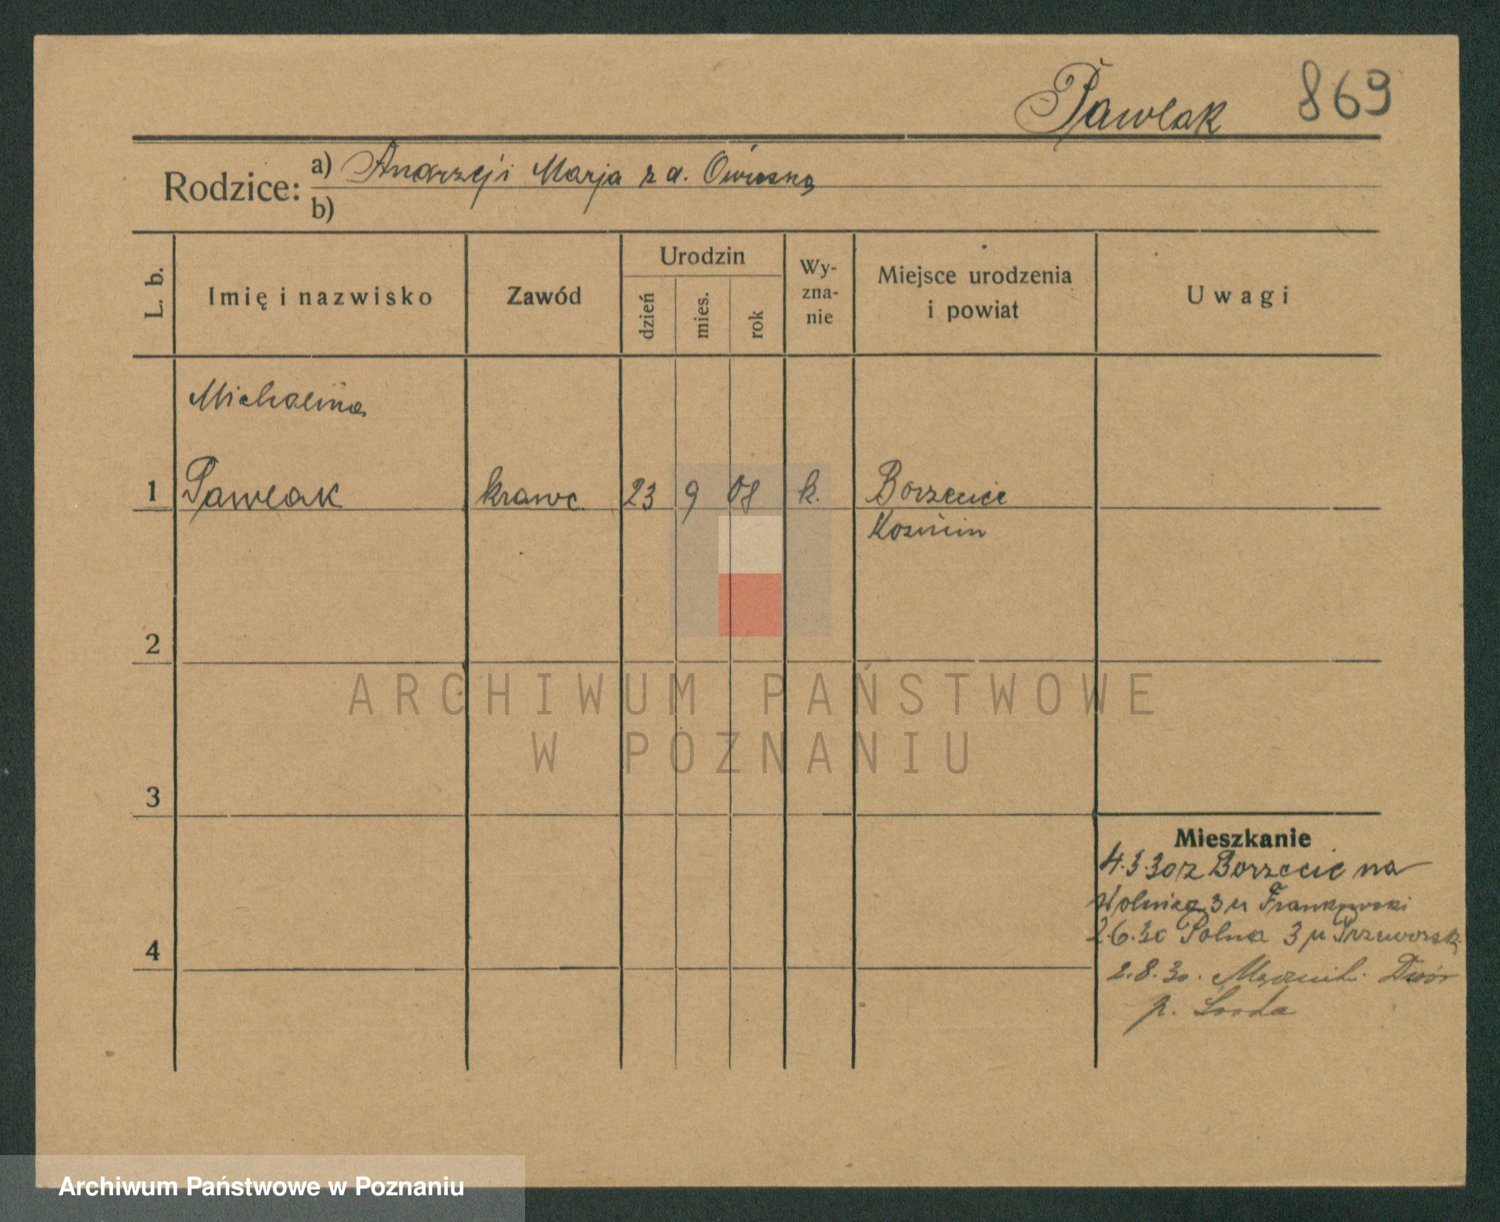 Pawlak 869
Rodzice: a) Andrzej i Marja z d.
b)
L. b. Imię i nazwisko Zawód Urodzin dzień mies. rok Wy-zna-nie Miejsce urodzenia i powiat Uwagi
Michalina
1 Pawlak krawc. 23 9 08 k. Borzecice
Koźmin
2
ARCHIWUM PAŃSTWOWE
W POZNANIU
3
Mieszkanie
4.3.30 z Borzecic na
Wolnica 3 u Frankowski
4
2.6.30 Polna 3 u Przeworsk
2.8.30. Dwór
p. Środa
Archiwum Państwowe w Poznaniu